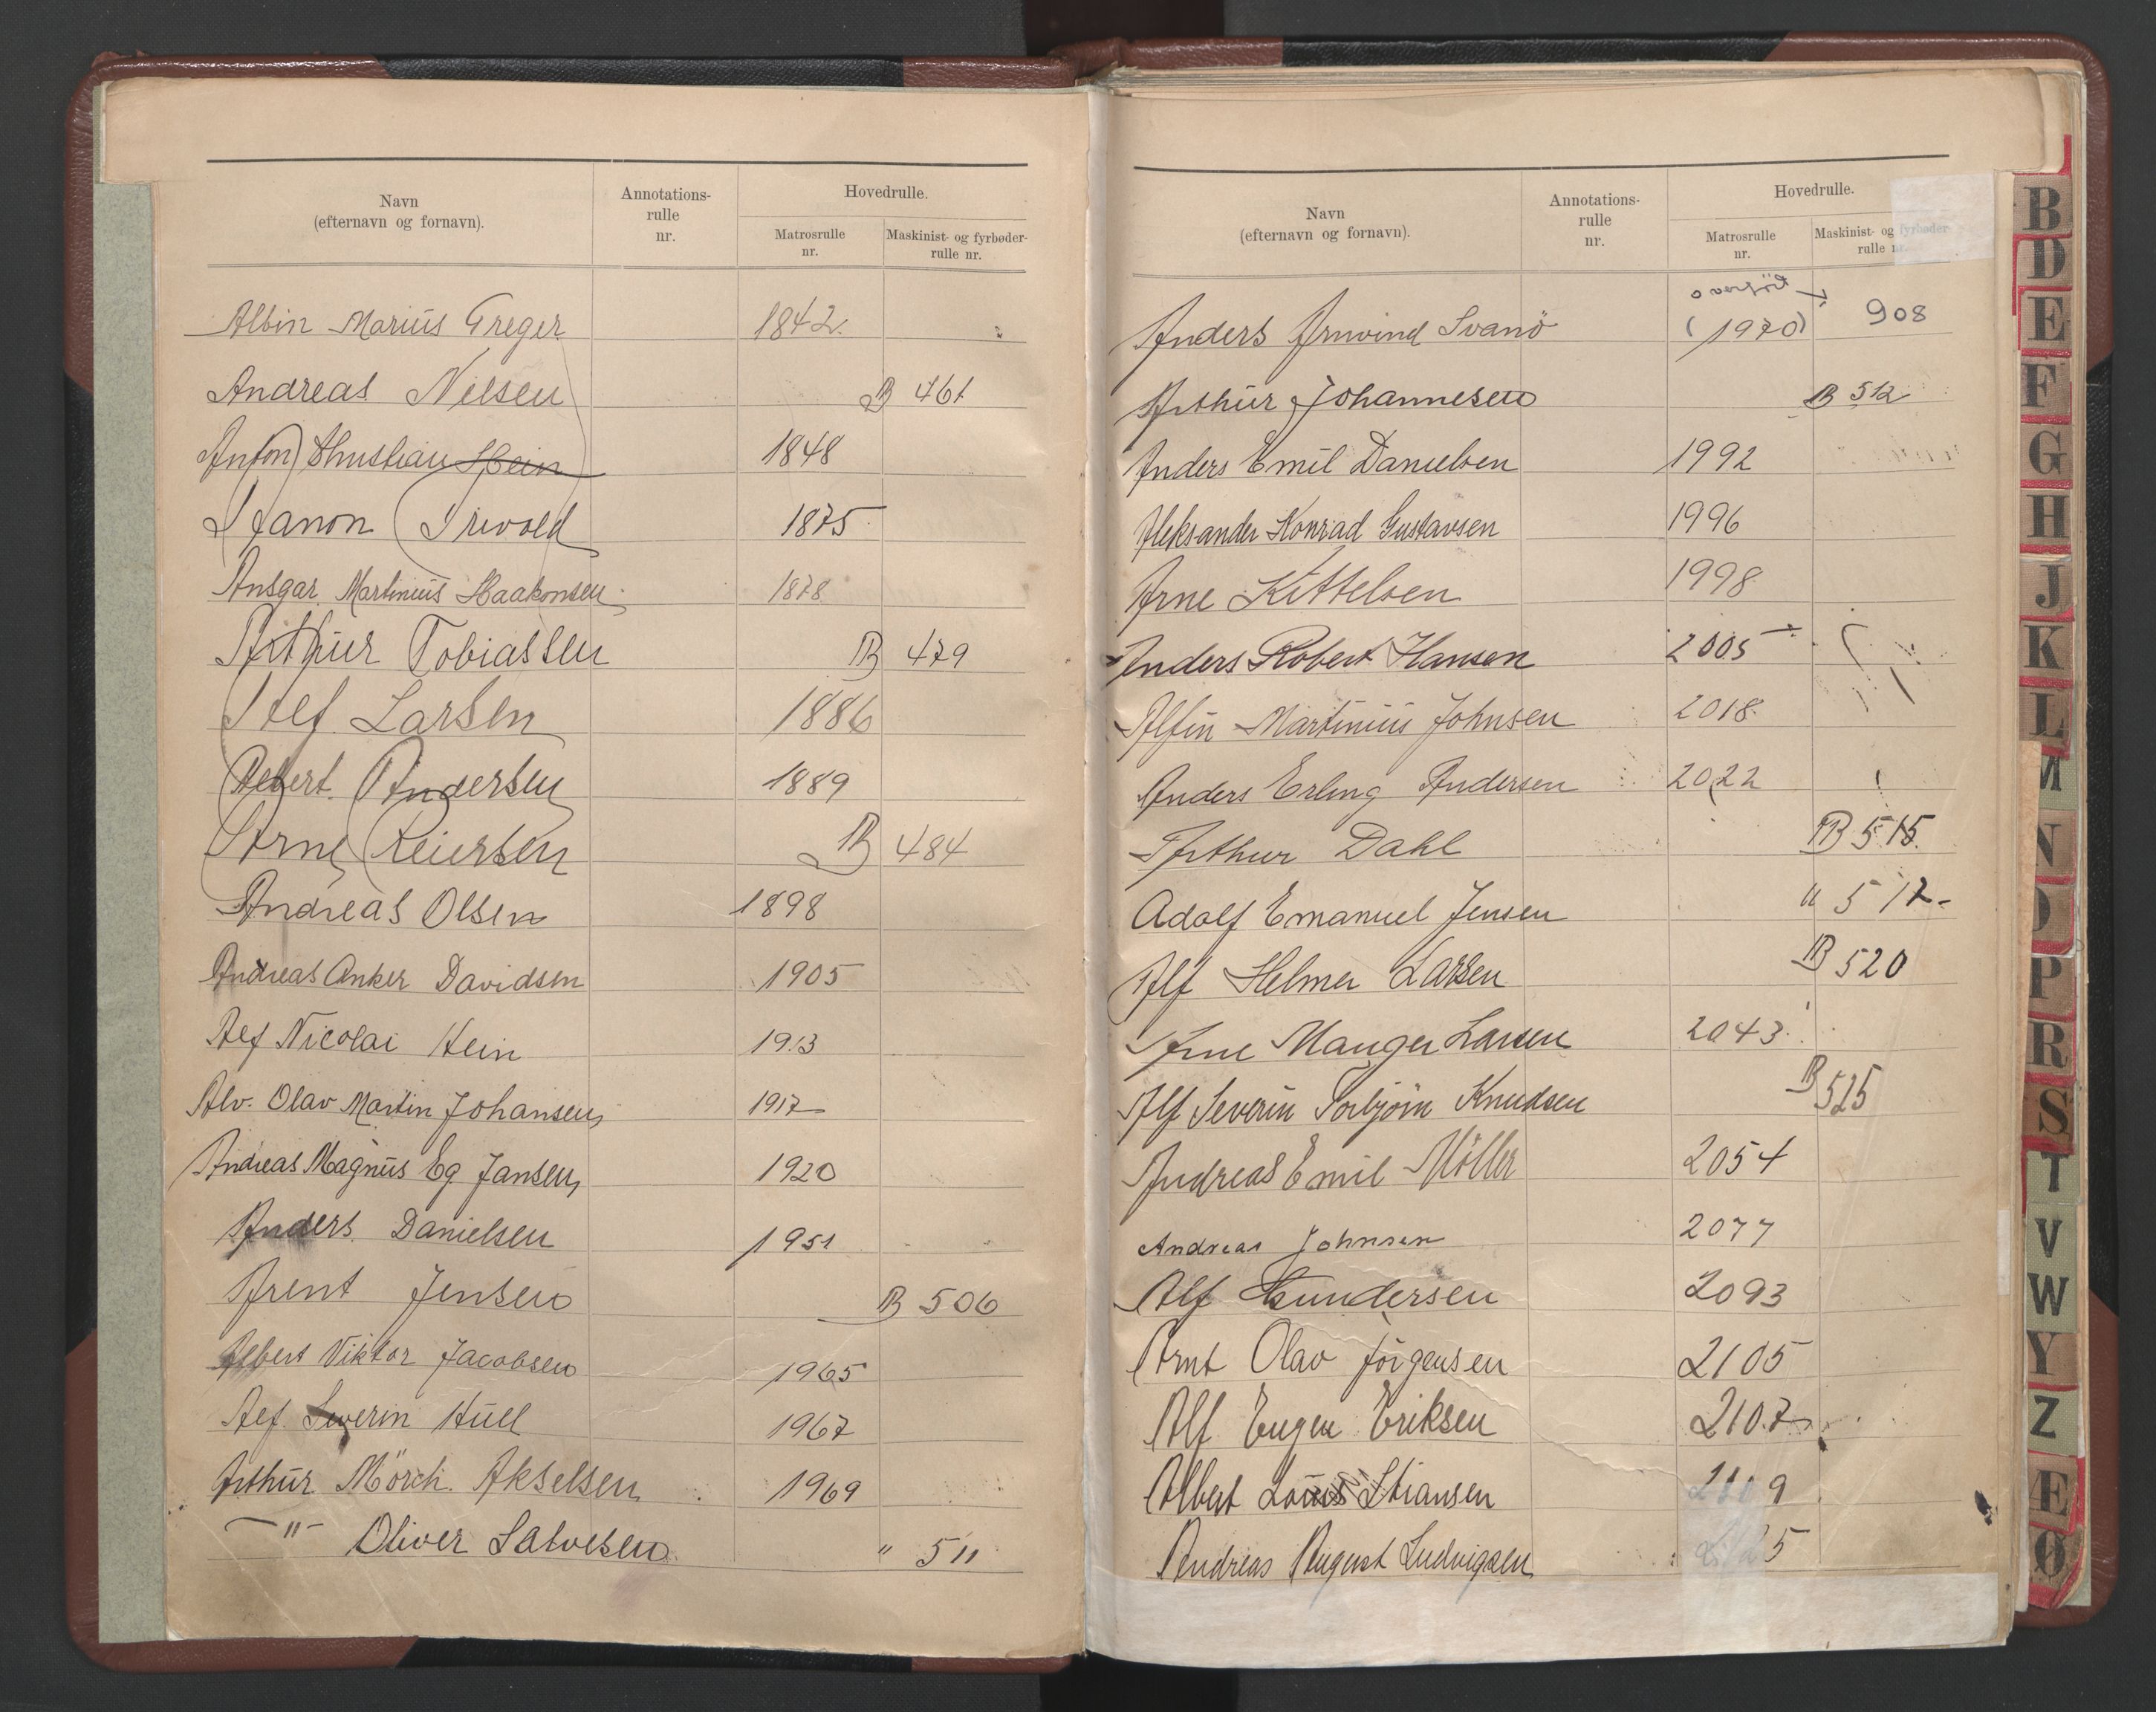 Navn
(efternavn og fornavn).
Annotations-
rulle
nr.
Hovedrulle.
Matrosrulle
nr.
Maskinist- og fyrbøder-
rulle nr.
Albin Marius Greger 1842.
Andreas Nilsen B 461
Anton Christian Hein 1848
Aanon Trivold 1875
Ansgar Martinius Haakonsen 1878
Arthur Tobiassen B 479
Alf Larsen 1886
Albert Andersen 1889
Arne Reiersen B 484
Andreas Olsen 1898
Andreas Anker Davidsen 1905
Alf Nicolai Hein 1913
Alv. Olav Martin Johansen 1917
Andreas Magnus Eg Jansen 1920
Anders Danielsen 1951
Arent Jensen B 506
Albert Viktor Jacobsen 1965
Alf Severin Hüll 1967
Arthur Mörch Akselsen 1969
—"— Oliver Salvesen " 511
Navn
(efternavn og fornavn).
Annotations-
rulle
nr.
Hovedrulle.
Matrosrulle
nr.
Maskinist- og fyrbøder-
rulle nr.
overført
Anders Arnvind Svanö (1970) 908
Arthur Johannesen B 512
Anders Emil Danielsen 1992
Aleksander Konrad Gustavsen 1996
Arne Kittelsen 1998
Anders Robert Hansen 2005
Alfin Martinius Johnsen 2018
Anders Erling Andersen 2022
Arthur Dahl B 515
Adolf Emanuel Jensen " 517
Alf Helmer Larsen B 520
Arne Manger Larsen 2043
Alf Severin Torbjörn Knudsen B 525
Andreas Emil Möller 2054
Andreas Johnsen 2077
Alf Gundersen 2093
Arnt Olav Jörgensen 2105
Alf Eugen Eriksen 2107
Albert Louis Stiansen 2109
Andreas August Ludvigsen 2125
B
D
E
F
G
H
J
K
L
M
N
O
P
R
S
T
V
W
Y
Z
Æ
Ø